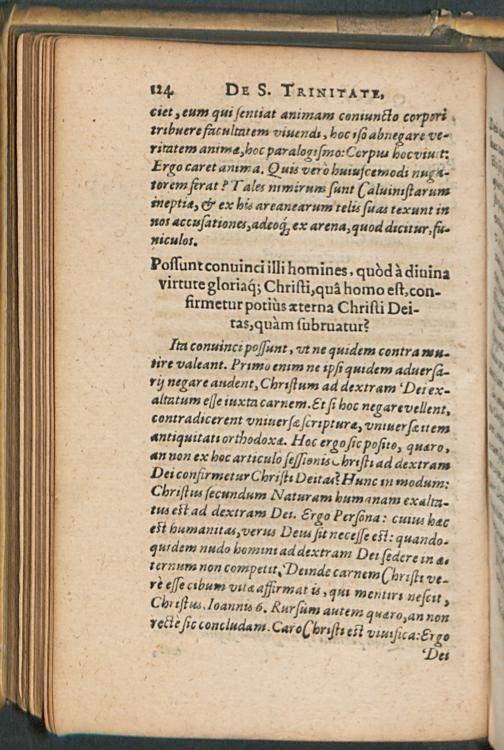 124 DE S. TRINITATE,
ciet, eum qui sentiat animam coniuncto corpori
tribuere facultatem viuendi, hoc ipso abnegare ve-
ritatem animæ, hoc paralogismo: Corpus hoc viuit:
Ergo caret anima. Quis verò huiuscemodi nugá-
torem ferat? Tales nimirum sunt Caluinistarum
ineptiæ, & ex his areanearum telis suas texunt in
nos accusationes, adeoq; ex arena, quod dicitur, fu-
niculos.
Possunt conuinci illi homines, quòd à diuina
virtute gloriaq; Christi, quâ homo est, con-
firmetur potiùs æterna Christi Dei-
tas, quàm subruatur?
Ita conuinci possunt, vt ne quidem contra mu-
tire valeant. Primo enim ne ipsi quidem aduersa-
rij negare audent, Christum ad dextram Dei ex-
altatum esse iuxta carnem. Et si hoc negare vellent,
contradicerent vniuersæ scripturæ, vniuersæ item
antiquitati orthodoxæ. Hoc ergo sic posito, quæro,
an non ex hoc articulo sessionis Christi ad dextram
Dei confirmetur Christi Deitas? Hunc in modum:
Christus secundum Naturam humanam exalta-
tus est ad dextram Dei. Ergo Persona: cuius hæc
est humanitas, verus Deus sit necesse est: quando-
quidem nudo homini ad dextram Dei sedere in æ-
ternum non competit. Deinde carnem Christi ve-
rè esse cibum vitæ affirmat is, qui mentiri nescit,
Christus, Ioannis 6. Rursùm autem quæro, an non
rectè sic concludam. Caro Christi est viuifica: Ergo
Dei